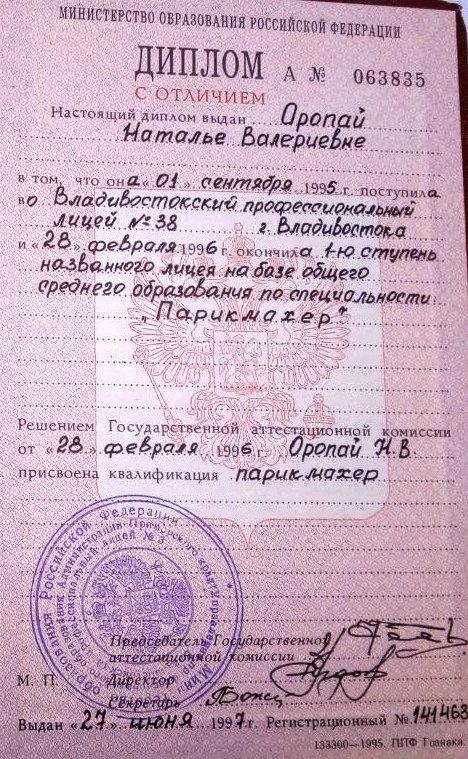 МИНИСТЕРСТВО ОБРАЗОВАНИЯ РОССИЙСКОЙ ФЕДЕРАЦИИ
ДИПЛОМ А № 063835
С ОТЛИЧИЕМ
Настоящий диплом выдан Оропай
Наталье Валериевне
в том, что она «01» сентября 1995 г. поступила
во Владивостокский профессиональный
лицей № 38 г. Владивостока
и «28» февраля 1996 г. окончила 1-ю ступень
названного лицея на базе общего
среднего образования по специальности:
„Парикмахер"
Решением Государственной аттестационной комиссии
от «28» февраля 1996 г. Оропай Н.В.
присвоена квалификация парикмахер
Председатель Государственной
аттестационной комиссии
М. П. Директор
Секретарь
Выдан «27» июня 1997 г. Регистрационный № 141463
133300—1995. ППФ Гознака.